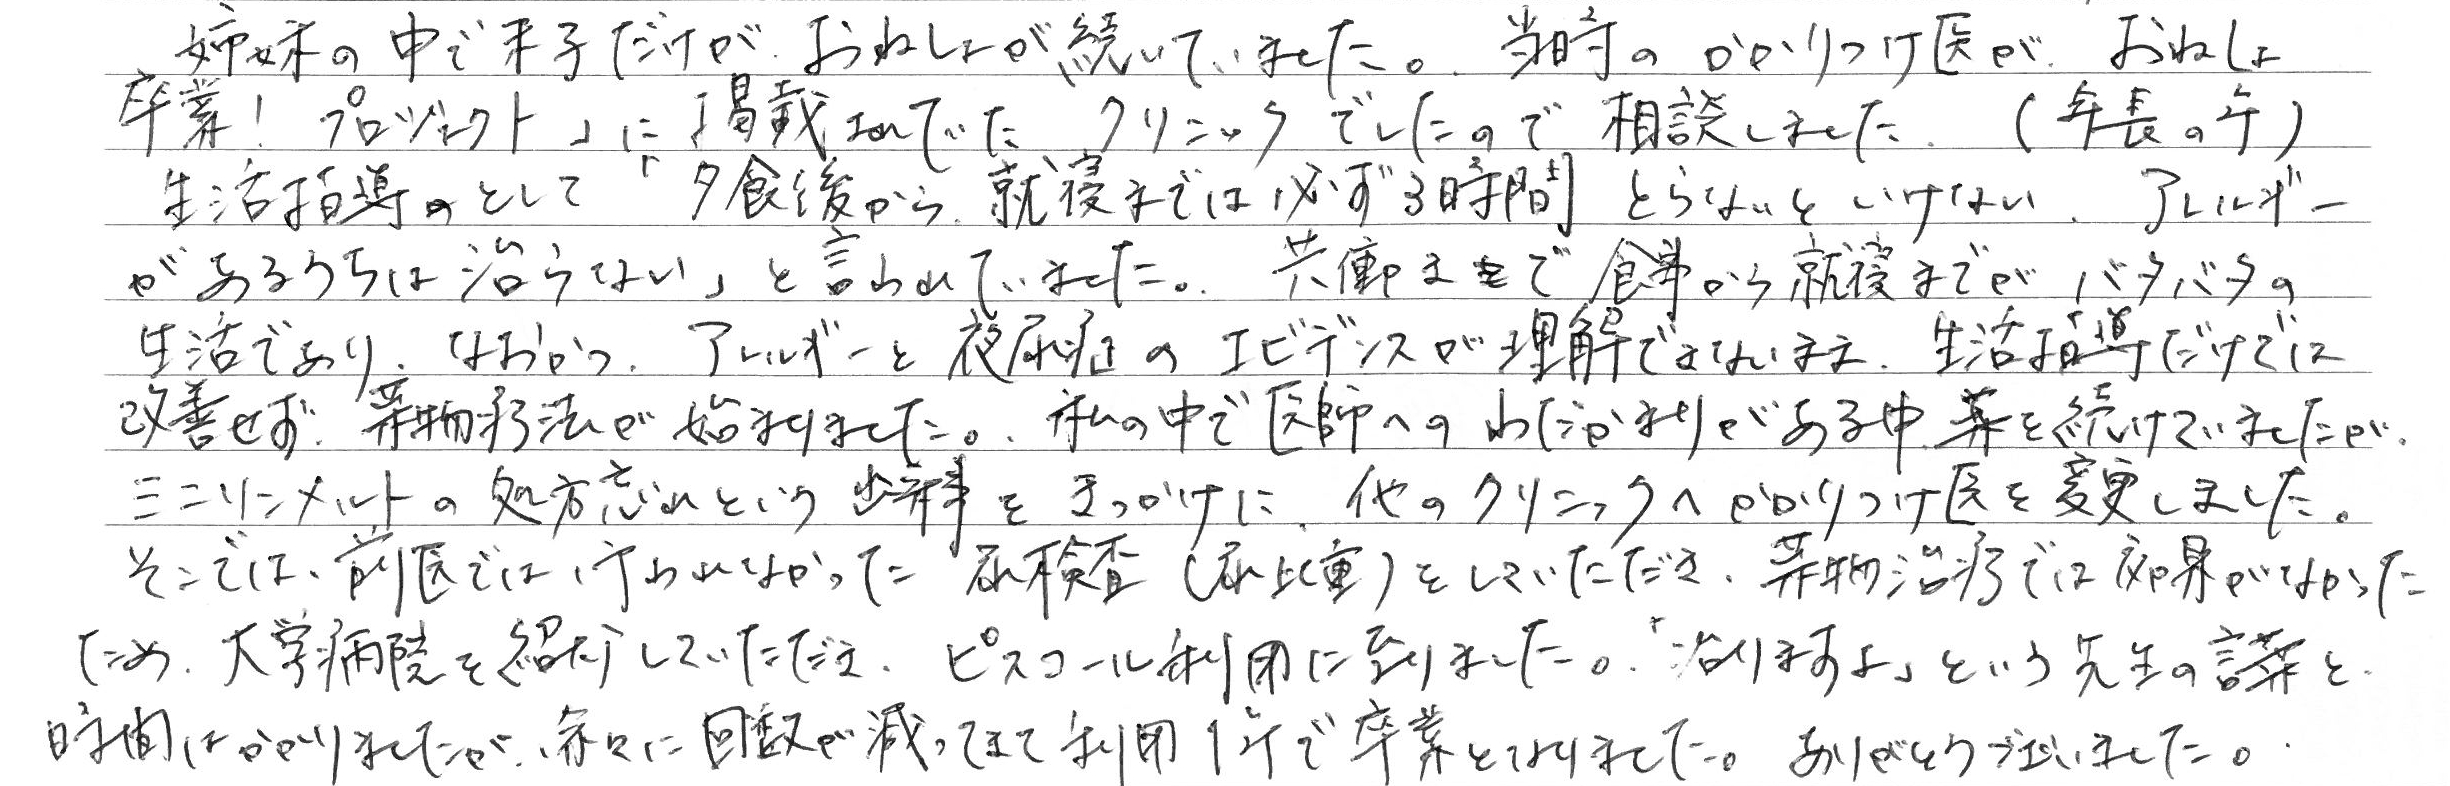 姉妹の中で末子だけが、おねしょが続いていました。当時のかかりつけ医が、おねしょ
卒業！プロジェクト」に掲載されていたクリニックでしたので相談しました。（年長の年）
生活指導のとして「夕食後から、就寝までは必ず3時間とらないといけない、アレルギー
があるうちは治らない」と言われていました。共働きで食事から就寝までがバタバタの
生活であり、なおかつ、アレルギーと夜尿症のエビデンスが理解できないまま、生活指導だけでは
改善せず、薬物療法が始まりました。私の中で医師へのわだかまりがある中、薬を続けていましたが、
ミニリンメルトの処方忘れという出来事をきっかけに、他のクリニックへかかりつけ医を変更しました。
そこでは、前医では行われなかった尿検査（尿比重）をしていただき、薬物治療では効果がなかった
ため、大学病院を紹介していただき、ピスコール利用に至りました。「治りますよ」という先生の言葉と、
時間はかかりましたが、徐々に回数が減ってきて利用1年で卒業となりました。ありがとうございました。